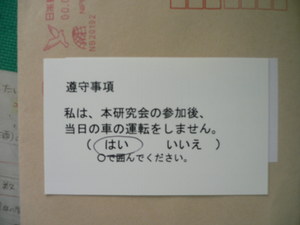 遵守事項
私は、本研究会の参加後、
当日の車の運転をしません。
（ はい　　いいえ ）
○で囲んでください。